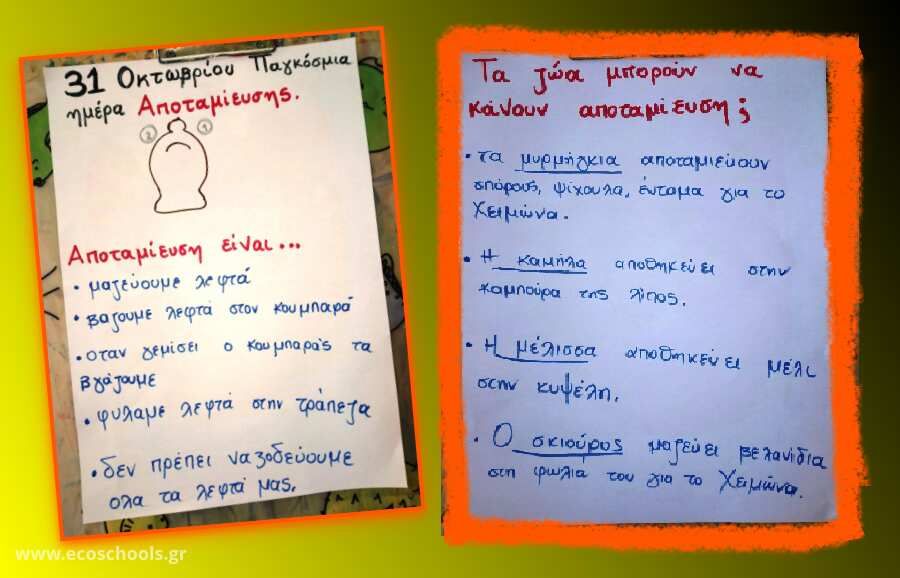 31 Οκτωβρίου Παγκόσμια
ημέρα Αποταμίευσης.
2 1
Αποταμίευση είναι...
• μαζεύουμε λεφτά
• βαζουμε λεφτα στον κουμπαρά
• οταν γεμίσει ο κουμπαράς τα
βγάζουμε
• φυλαμε λεφτά στην τράπεζα
• δεν πρέπει να ξοδεύουμε
ολα τα λεφτά μας.
Τα ζώα μπορούν να
κάνουν αποταμίευση;
• τα μυρμήγκια αποταμιεύουν
σπόρους, ψίχουλα, έντομα για το
Χειμώνα.
• Η καμήλα αποθηκεύει στην
καμπούρα της λίπος.
• Η μέλισσα αποθηκεύει μέλι
στην κυψέλη.
• Ο σκιούρος μαζεύει βελανίδια
στη φωλια του για το Χειμώνα.
www.ecoschools.gr